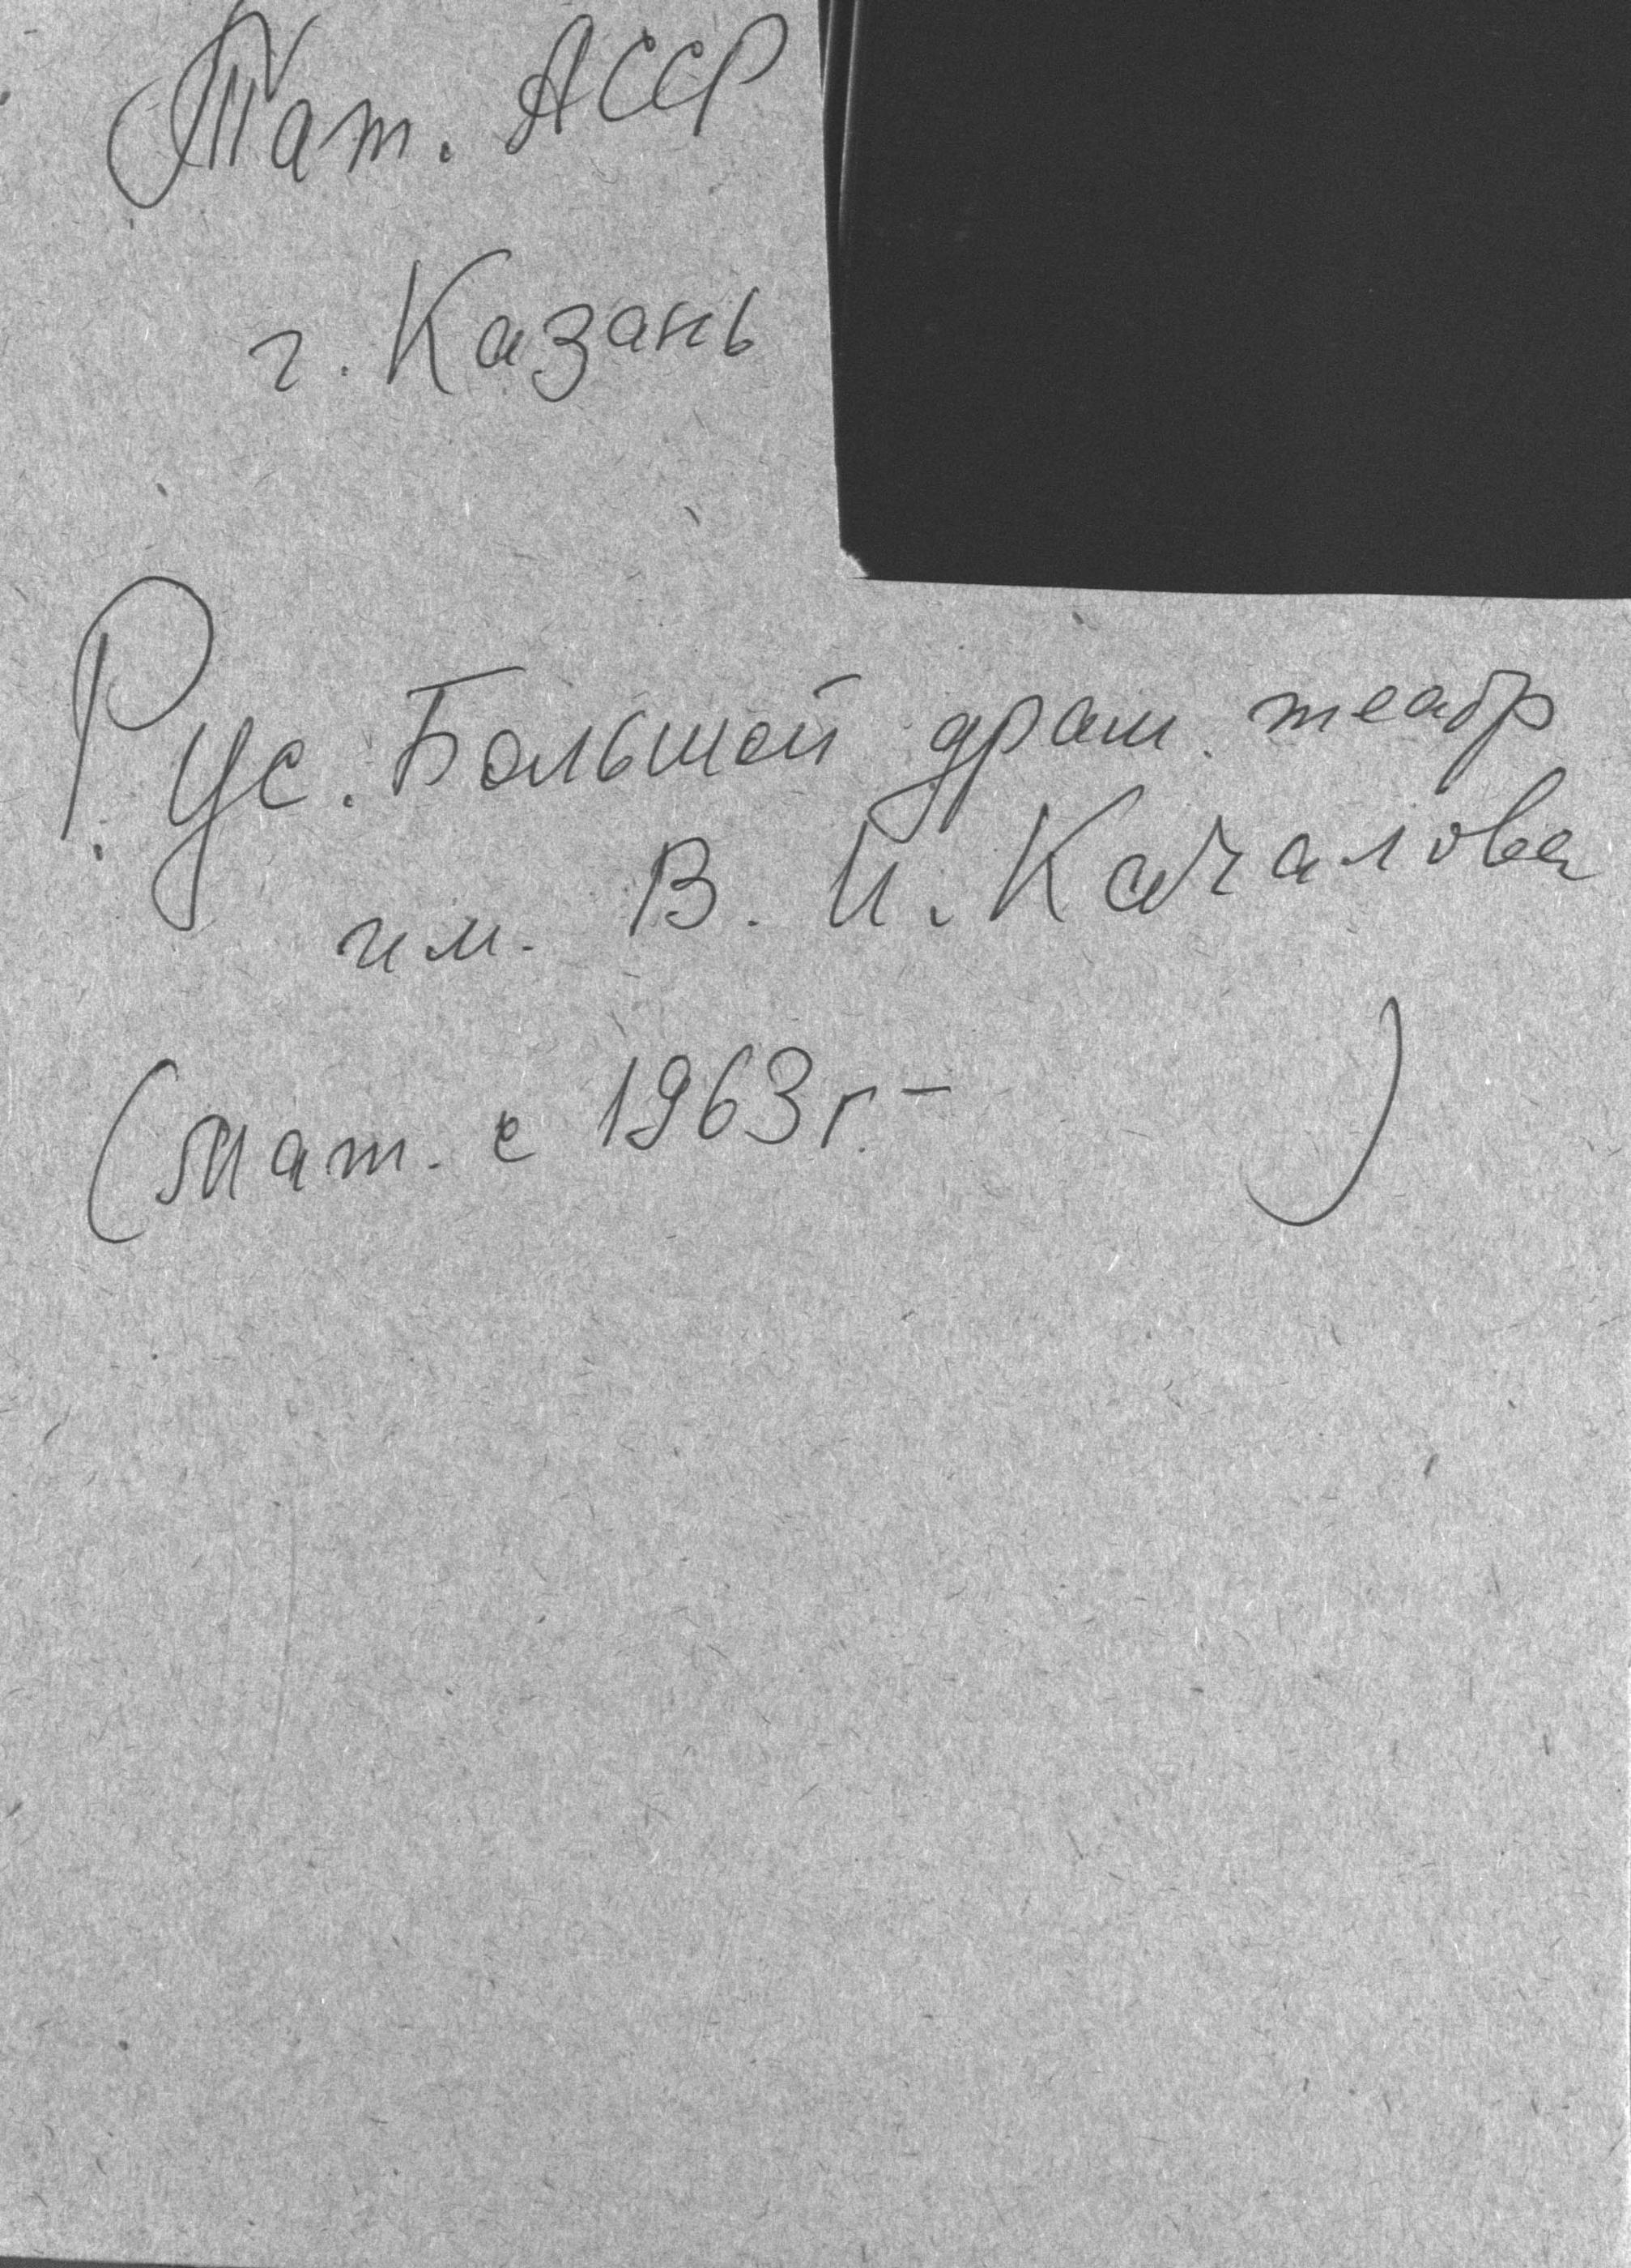 Тат. АССР
г. Казань
Рус. Большой драм. театр
им. В. И. Качалова
(мат. с 1963 г. - )